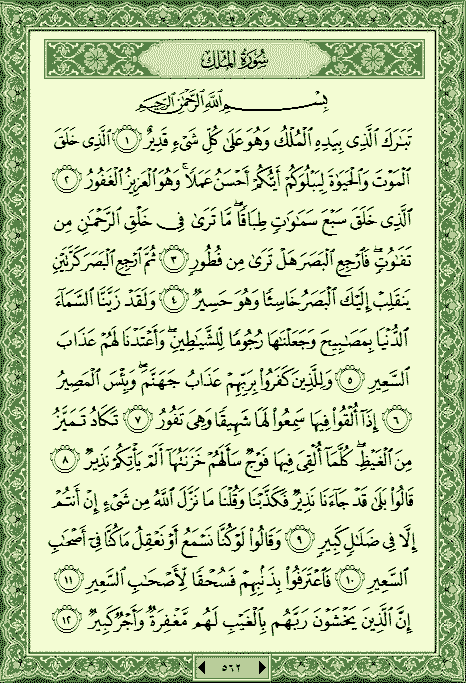 سُورَةُ المُلْكِ
بِسْمِ ٱللَّهِ ٱلرَّحْمَٰنِ ٱلرَّحِيمِ
تَبَٰرَكَ ٱلَّذِى بِيَدِهِ ٱلْمُلْكُ وَهُوَ عَلَىٰ كُلِّ شَىْءٍ قَدِيرٌ ١ ٱلَّذِى خَلَقَ
ٱلْمَوْتَ وَٱلْحَيَوٰةَ لِيَبْلُوَكُمْ أَيُّكُمْ أَحْسَنُ عَمَلًا ۚ وَهُوَ ٱلْعَزِيزُ ٱلْغَفُورُ ٢
ٱلَّذِى خَلَقَ سَبْعَ سَمَٰوَٰتٍ طِبَاقًا ۖ مَّا تَرَىٰ فِى خَلْقِ ٱلرَّحْمَٰنِ مِن
تَفَٰوُتٍ ۖ فَٱرْجِعِ ٱلْبَصَرَ هَلْ تَرَىٰ مِن فُطُورٍ ٣ ثُمَّ ٱرْجِعِ ٱلْبَصَرَ كَرَّتَيْنِ
يَنقَلِبْ إِلَيْكَ ٱلْبَصَرُ خَاسِئًا وَهُوَ حَسِيرٌ ٤ وَلَقَدْ زَيَّنَّا ٱلسَّمَآءَ
ٱلدُّنْيَا بِمَصَٰبِيحَ وَجَعَلْنَٰهَا رُجُومًا لِّلشَّيَٰطِينِ ۖ وَأَعْتَدْنَا لَهُمْ عَذَابَ
ٱلسَّعِيرِ ٥ وَلِلَّذِينَ كَفَرُوا۟ بِرَبِّهِمْ عَذَابُ جَهَنَّمَ ۖ وَبِئْسَ ٱلْمَصِيرُ
٦ إِذَآ أُلْقُوا۟ فِيهَا سَمِعُوا۟ لَهَا شَهِيقًا وَهِىَ تَفُورُ ٧ تَكَادُ تَمَيَّزُ
مِنَ ٱلْغَيْظِ ۖ كُلَّمَآ أُلْقِىَ فِيهَا فَوْجٌ سَأَلَهُمْ خَزَنَتُهَآ أَلَمْ يَأْتِكُمْ نَذِيرٌ ٨
قَالُوا۟ بَلَىٰ قَدْ جَآءَنَا نَذِيرٌ فَكَذَّبْنَا وَقُلْنَا مَا نَزَّلَ ٱللَّهُ مِن شَىْءٍ إِنْ أَنتُمْ
إِلَّا فِى ضَلَٰلٍ كَبِيرٍ ٩ وَقَالُوا۟ لَوْ كُنَّا نَسْمَعُ أَوْ نَعْقِلُ مَا كُنَّا فِىٓ أَصْحَٰبِ
ٱلسَّعِيرِ ١٠ فَٱعْتَرَفُوا۟ بِذَنۢبِهِمْ فَسُحْقًا لِّأَصْحَٰبِ ٱلسَّعِيرِ ١١
إِنَّ ٱلَّذِينَ يَخْشَوْنَ رَبَّهُم بِٱلْغَيْبِ لَهُم مَّغْفِرَةٌ وَأَجْرٌ كَبِيرٌ ١٢
٥٦٢